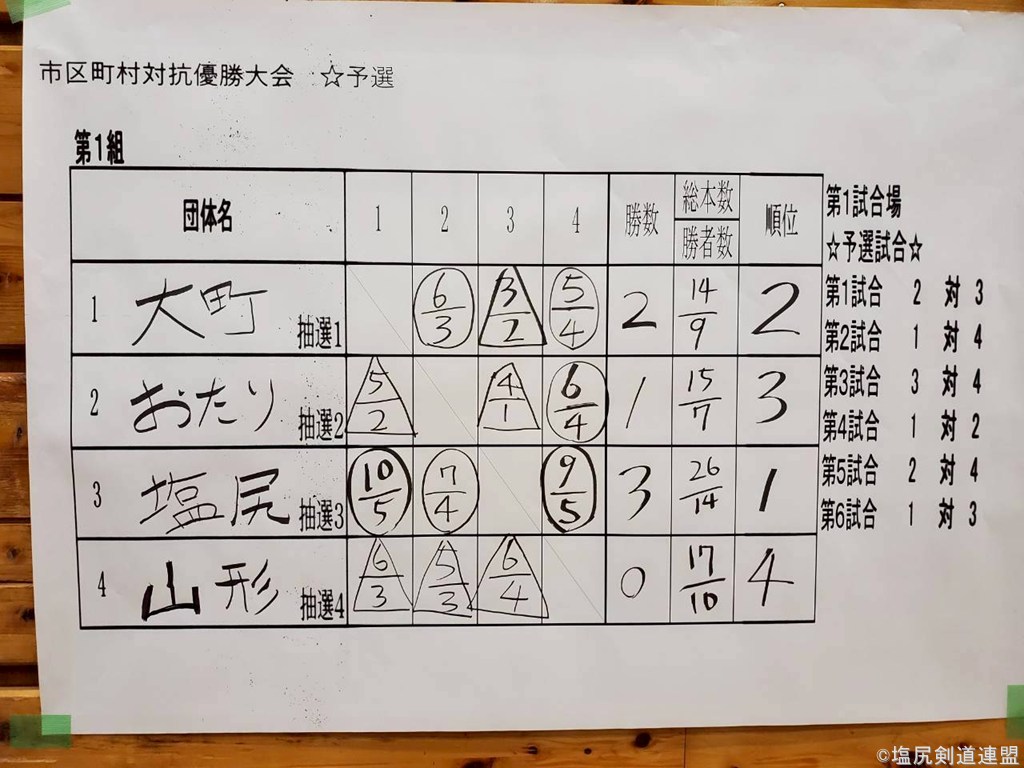 市区町村対抗優勝大会 ☆予選
第1組
団体名 1 2 3 4 勝数 総本数 勝者数 順位
1 大町 抽選1 6/3 3/2 5/4 2 14/9 2
2 おたり 抽選2 5/2 4/1 6/4 1 15/7 3
3 塩尻 抽選3 10/5 7/4 9/5 3 26/14 1
4 山形 抽選4 6/3 5/3 6/4 0 17/10 4
第1試合場
☆予選試合☆
第1試合 2 対 3
第2試合 1 対 4
第3試合 3 対 4
第4試合 1 対 2
第5試合 2 対 4
第6試合 1 対 3
©塩尻剣道連盟